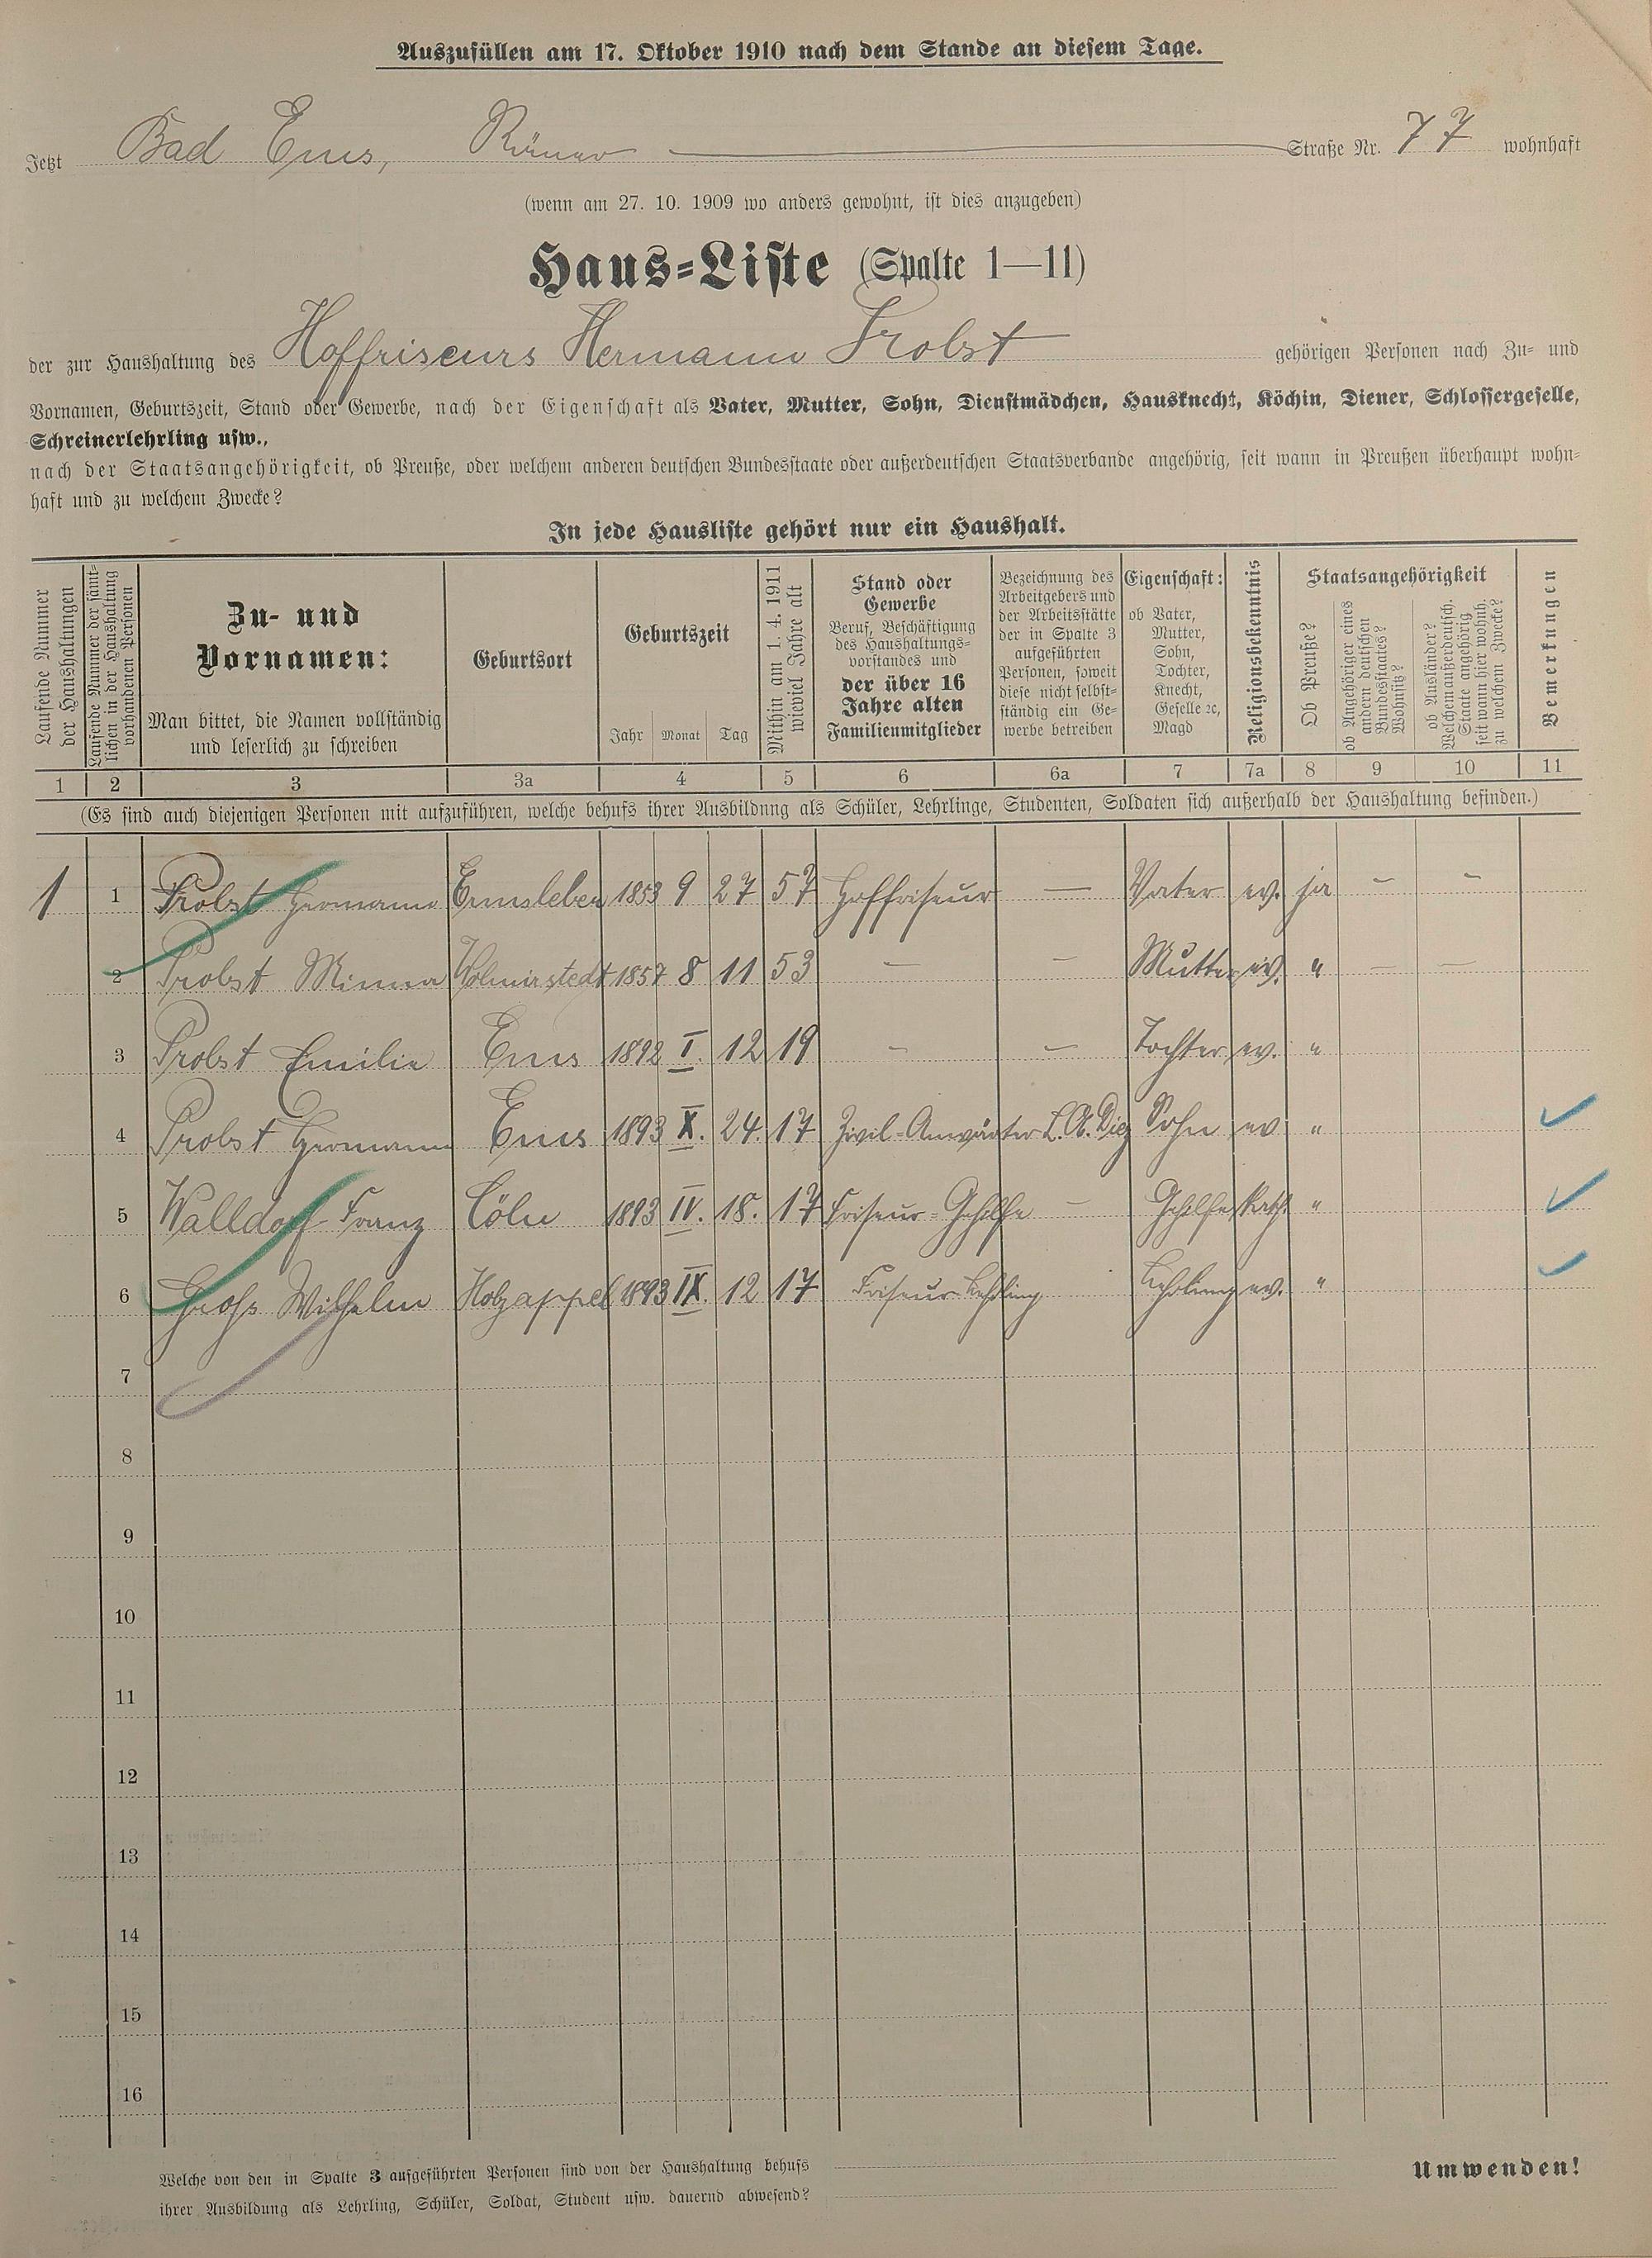 Auszufüllen am 17. Oktober 1910 nach dem Stande an diesem Tage.
Jetzt Bad Ems, Römer Straße Nr. 77 wohnhaft
(wenn am 27. 10. 1909 wo anders gewohnt, ist dies anzugeben)
Haus=Liste (Spalte 1—11)
der zur Haushaltung des Hoffriseurs Hermann Probst gehörigen Personen nach Zu= und
Vornamen, Geburtszeit, Stand oder Gewerbe, nach der Eigenschaft als Vater, Mutter, Sohn, Dienstmädchen, Hausknecht, Köchin, Diener, Schlossergeselle,
Schreinerlehrling usw.,
nach der Staatsangehörigkeit, ob Preuße, oder welchem anderen deutschen Bundesstaate oder außerdeutschen Staatsverbande angehörig, seit wann in Preußen überhaupt wohn=
haft und zu welchem Zwecke?
In jede Hausliste gehört nur ein Haushalt.
Laufende Nummer
der Haushaltungen
Laufende Nummer der sämt=
lichen in der Haushaltung
vorhandenen Personen
Zu- und
Vornamen:
Man bittet, die Namen vollständig
und leserlich zu schreiben
Geburtsort
Geburtszeit
Jahr Monat Tag
Mithin am 1. 4. 1911
wieviel Jahre alt
Stand oder
Gewerbe
Beruf, Beschäftigung
des Haushaltungs=
vorstandes und
der über 16
Jahre alten
Familienmitglieder
Bezeichnung des
Arbeitgebers und
der Arbeitsstätte
der in Spalte 3
aufgeführten
Personen, soweit
diese nicht selbst=
ständig ein Ge=
werbe betreiben
Eigenschaft:
ob Vater,
Mutter,
Sohn,
Tochter,
Knecht,
Geselle ec,
Magd
Religionsbekenntnis
Staatsangehörigkeit
Ob Preuße?
ob Angehöriger eines
andern deutschen
Bundesstaates?
Wohnsitz?
ob Ausländer?
Welchem außerdeutsch.
Staate angehörig,
seit wann hier wohnh.
zu welchem Zwecke?
Bemerkungen
1 2 3 3a 4 5 6 6a 7 7a 8 9 10 11
(Es sind auch diejenigen Personen mit aufzuführen, welche behufs ihrer Ausbildung als Schüler, Lehrlinge, Studenten, Soldaten sich außerhalb der Haushaltung befinden.)
1 1 Probst Hermann Ermsleben 1853 9 27 57 Hoffriseur — Vater ev. ja – –
2 Probst Minna Wolmirstedt 1857 8 11 53 — — Mutter ev. " — —
3 Probst Emilie Ems 1892 I. 12 19 – — Tochter ev. "
4 Probst Hermann Ems 1893 X. 24. 17 Zivil-Anwärter L.A. Diez Sohn ev "
5 Walldorf Franz Cöln 1893 IV. 18. 17 Friseur-Gehilfe — Gehilfe Kath. "
6 Groß Wilhelm Holzappel 1893 IX. 12 17 Friseur-Lehrling Lehrling ev. "
7
8
9
10
11
12
13
14
15
16
Welche von den in Spalte 3 aufgeführten Personen sind von der Haushaltung behufs
ihrer Ausbildung als Lehrling, Schüler, Soldat, Student usw. dauernd abwesend?
Umwenden!